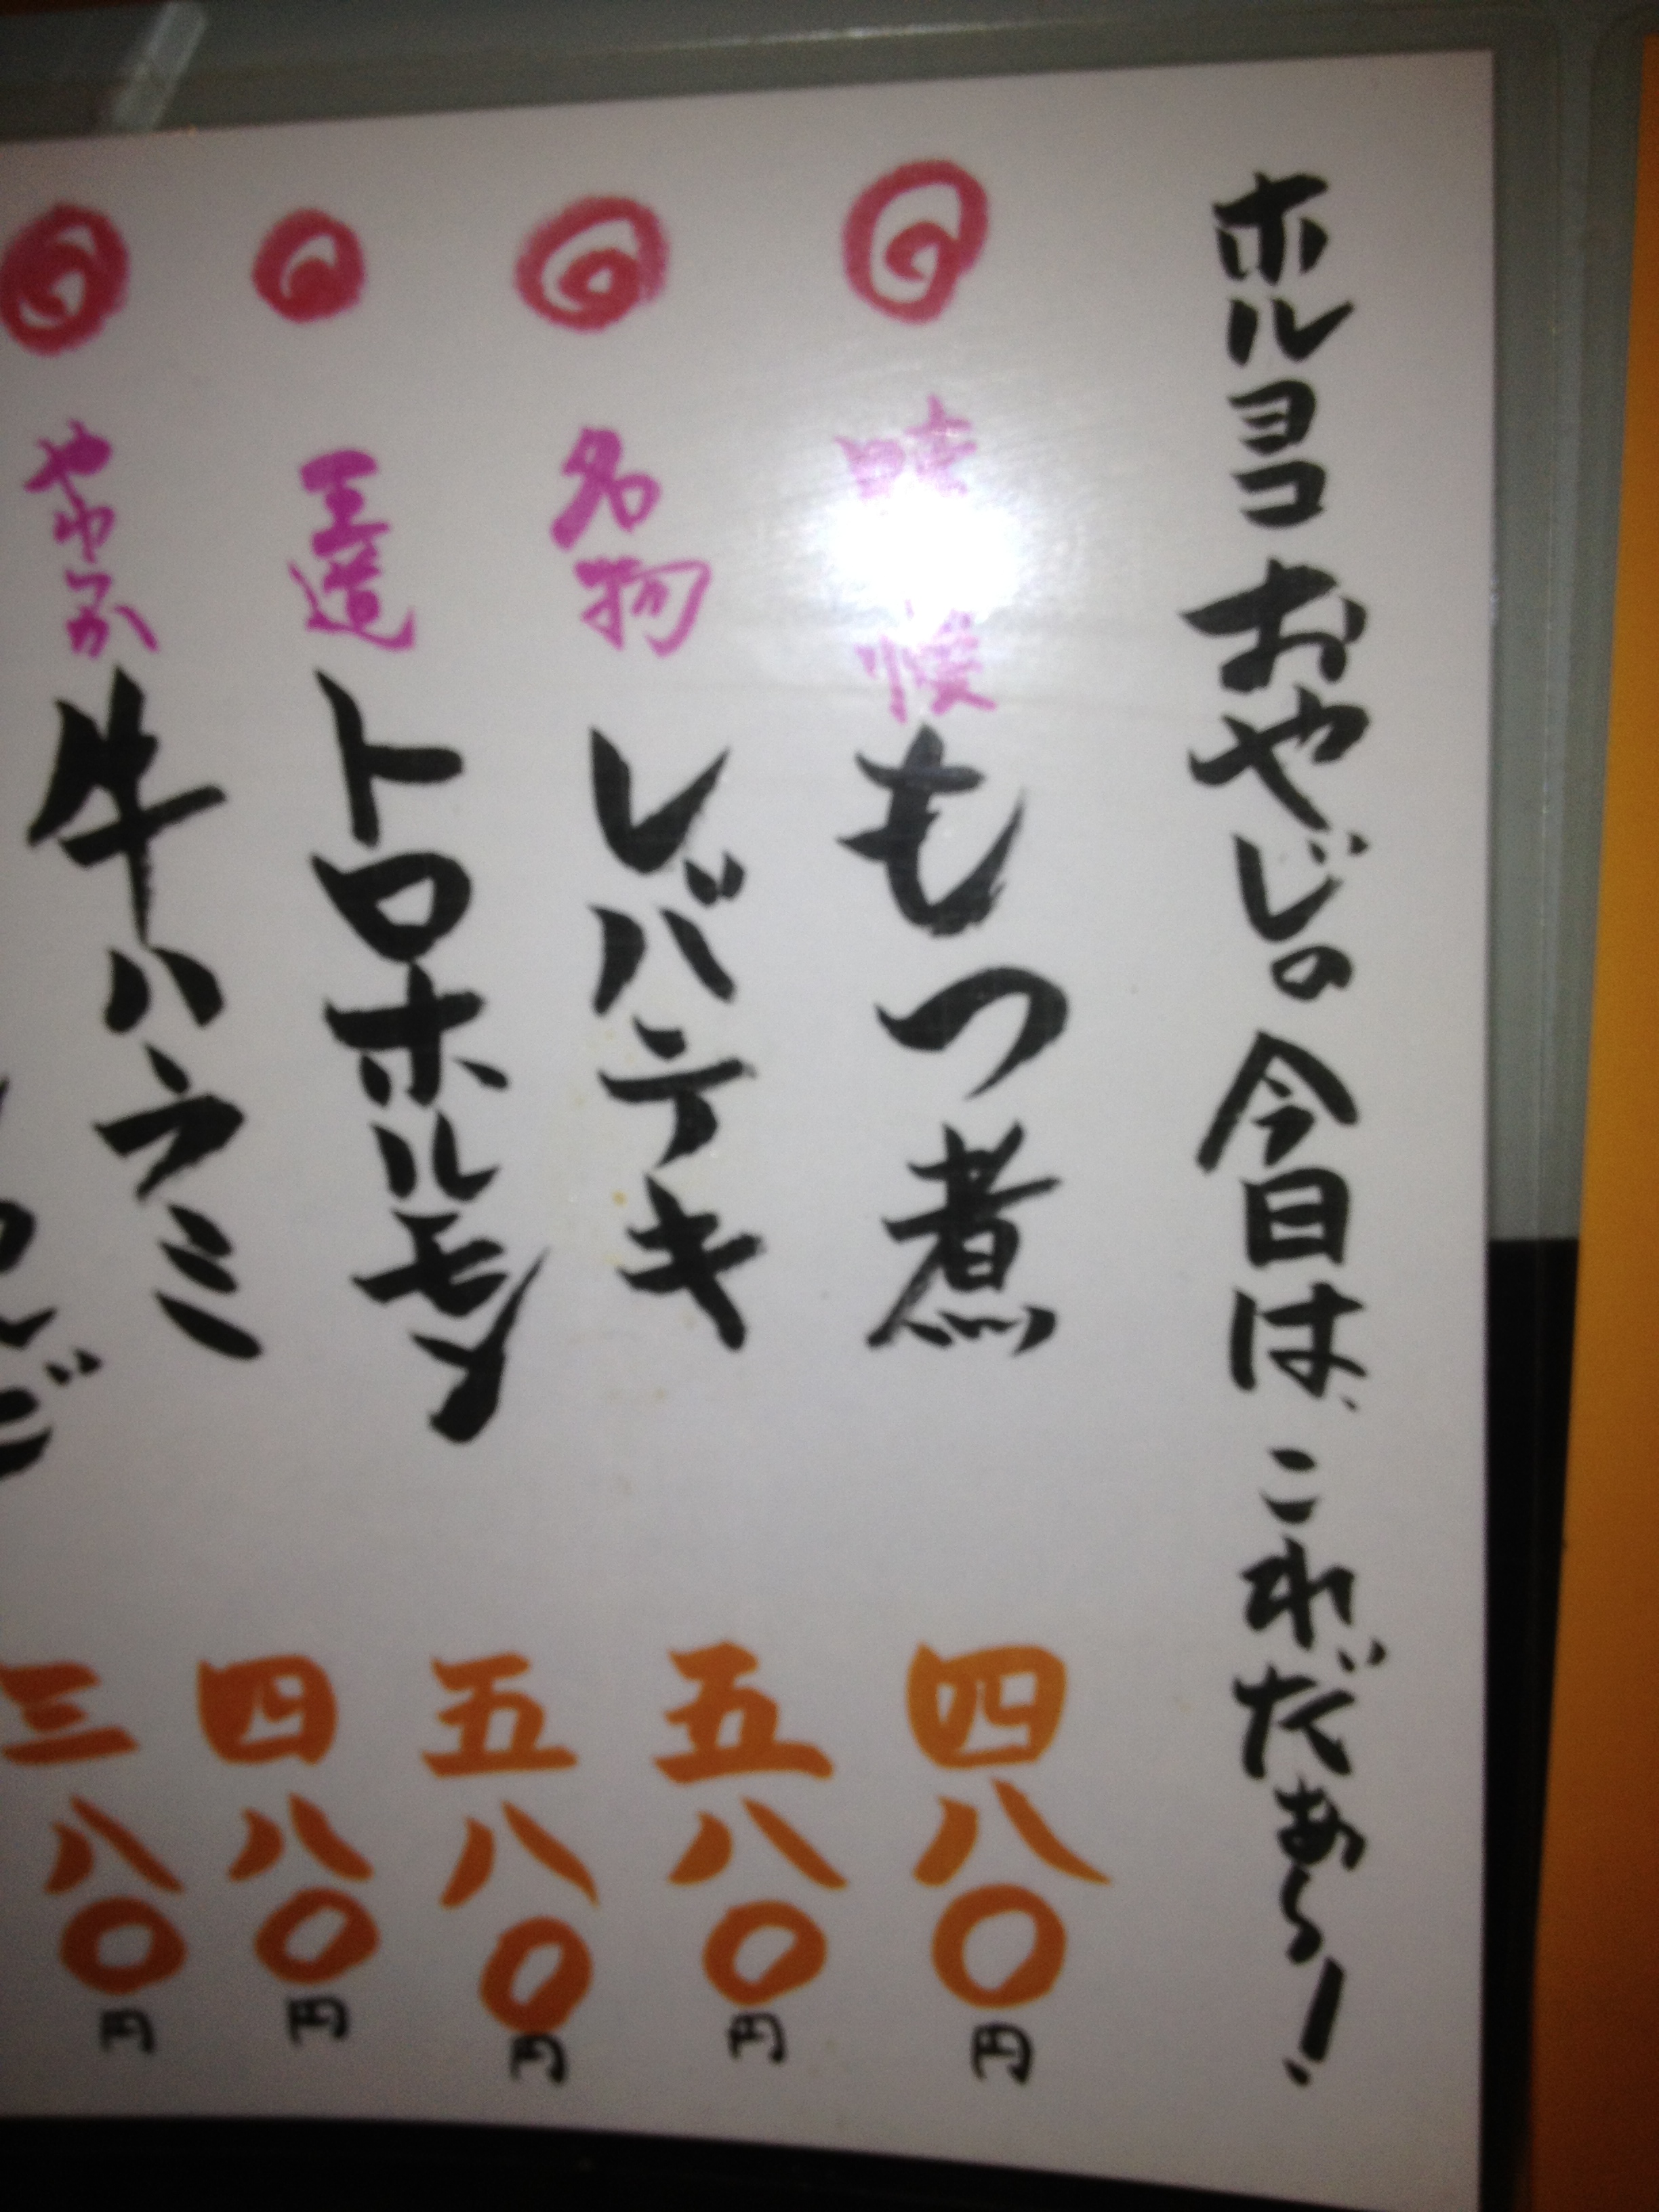 ホルヨコおやじの今日は、これだぁ〜!
もつ煮 四八〇円
名物 レバテキ 五八〇円
王道 トロホルモン 五八〇円
やわか 牛ハラミ 四八〇円
三八〇円